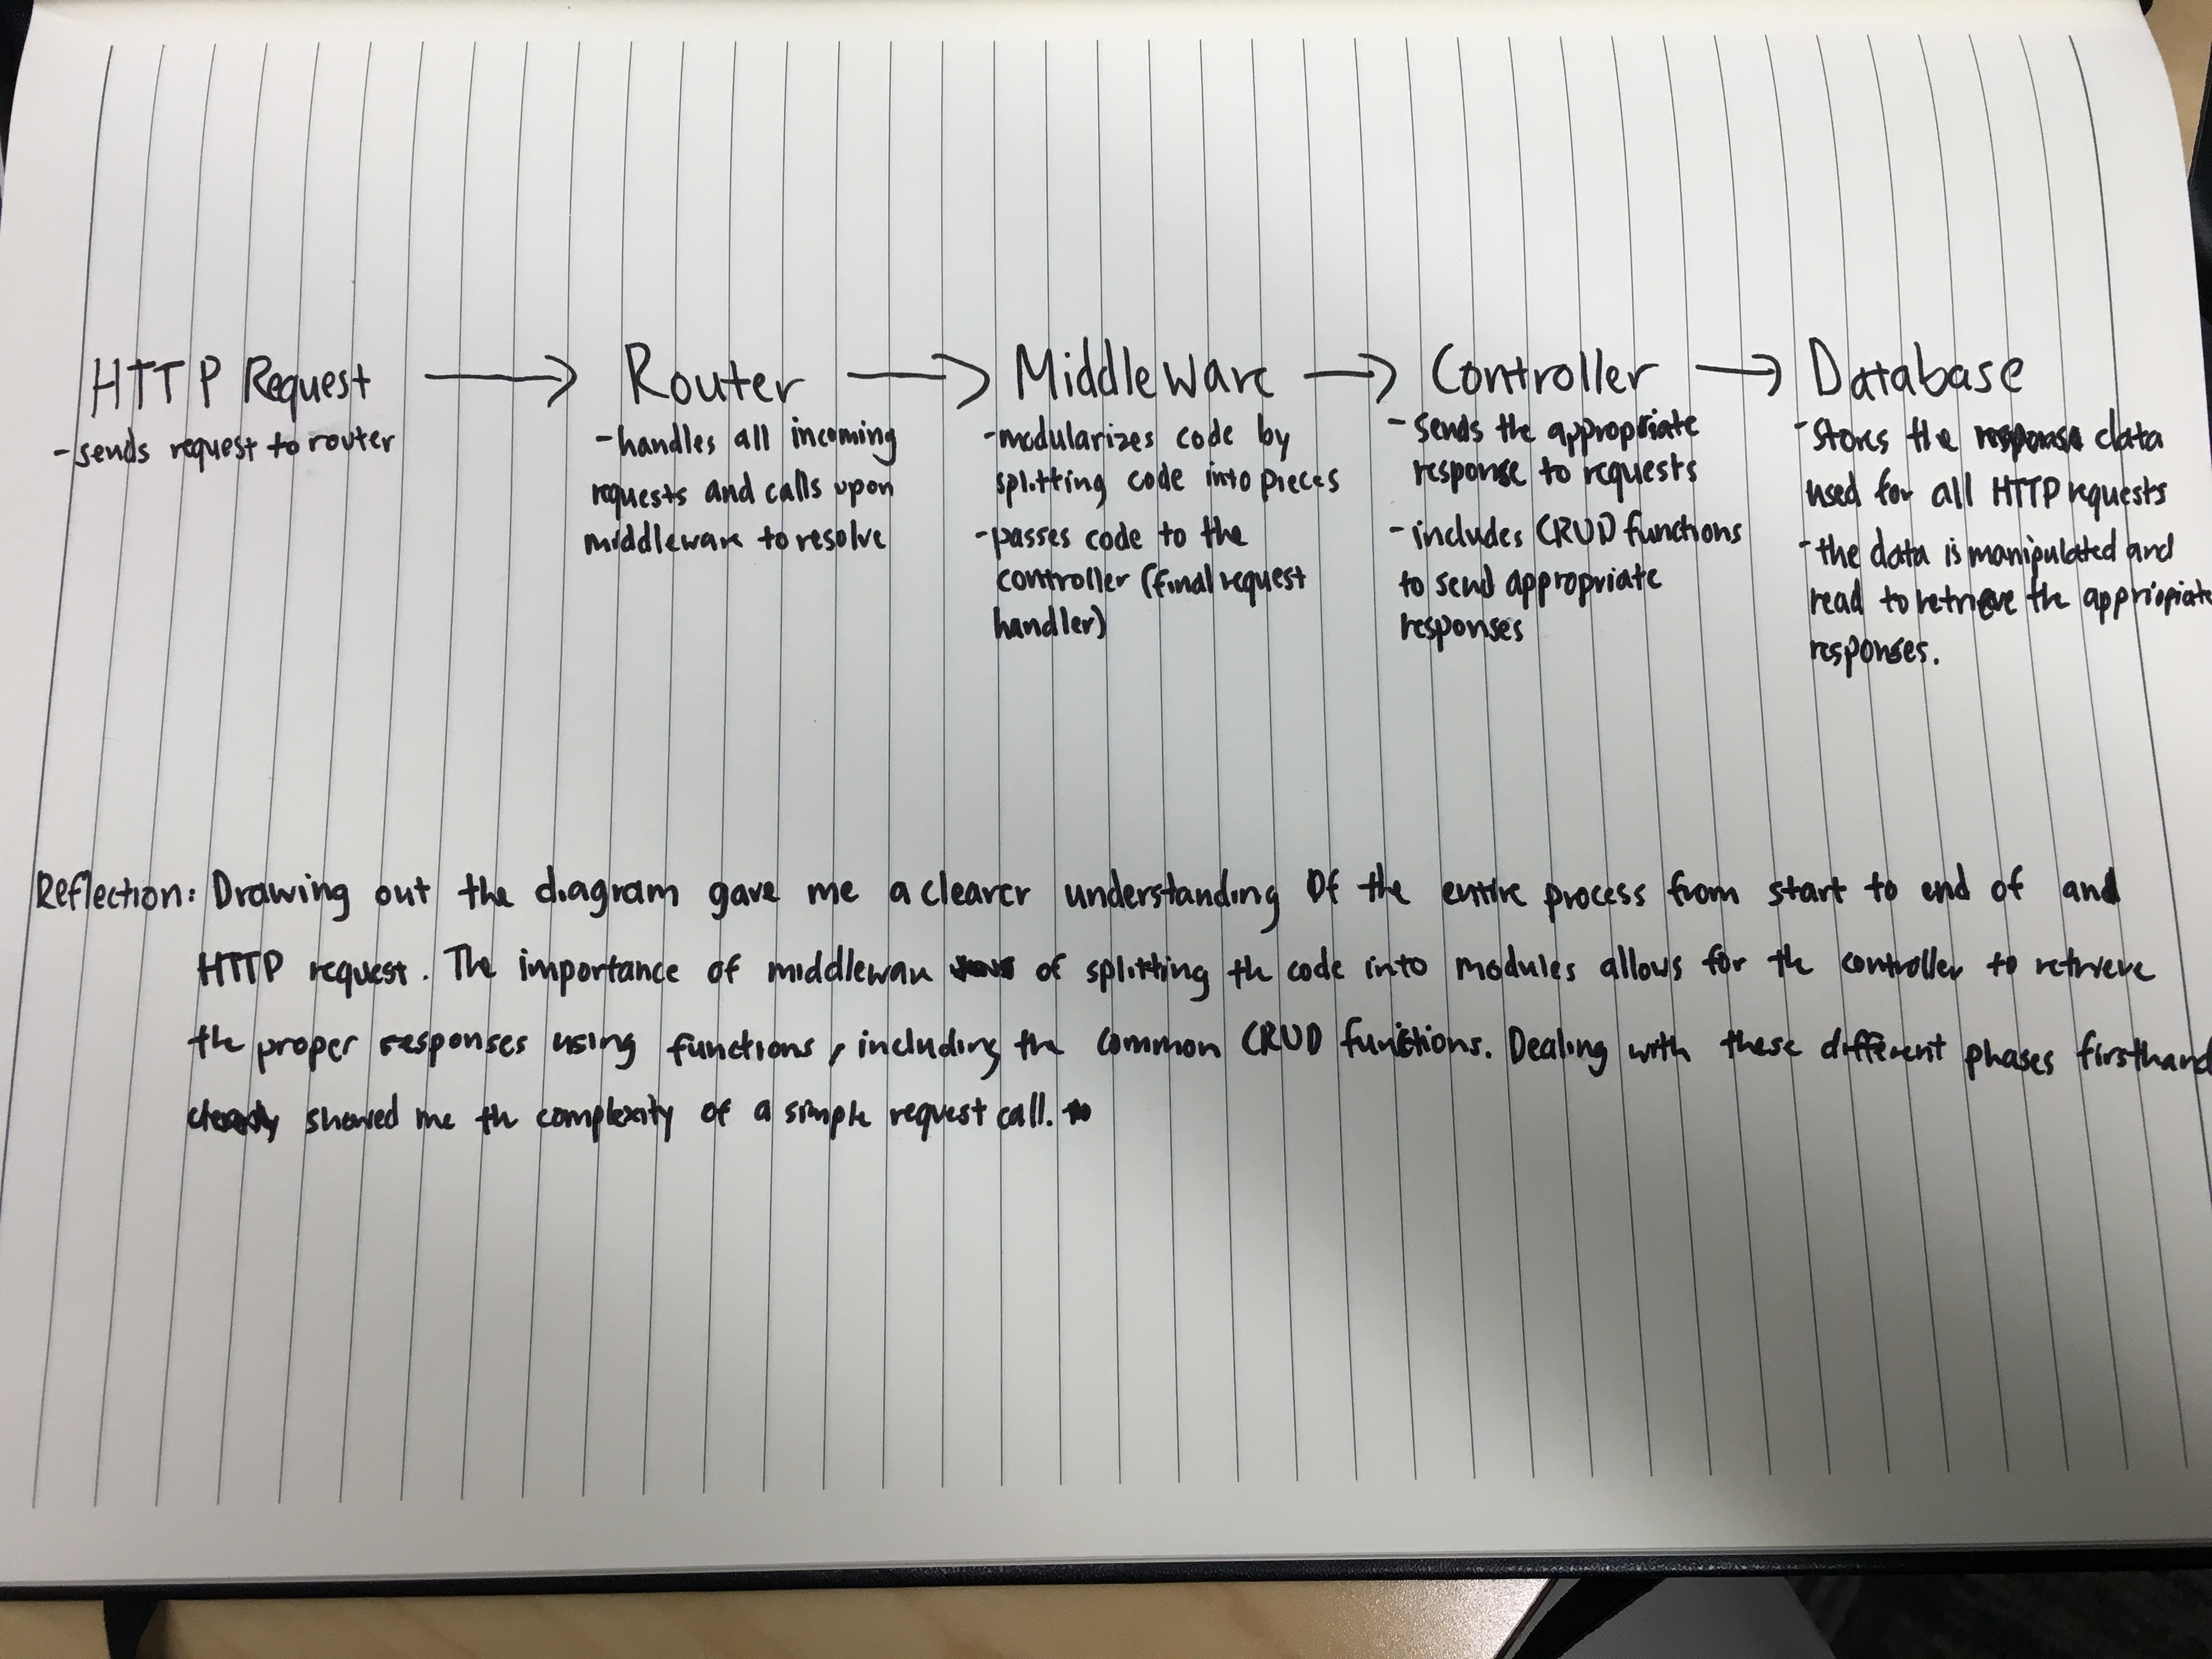 HTTP Request → Router → Middleware → Controller → Database
- sends request to router
- handles all incoming
requests and calls upon
middleware to resolve
- modularizes code by
splitting code into pieces
- passes code to the
controller (final request
handler)
- sends the appropriate
response to requests
- includes CRUD functions
to send appropriate
responses
- stores the response data
used for all HTTP requests
- the data is manipulated and
read to retrieve the appriopiate
responses.
Reflection: Drawing out the diagram gave me a clearer understanding of the entire process from start to end of and
HTTP request. The importance of middleware of splitting the code into modules allows for the controller to retrieve
the proper responses using functions, including the common CRUD functions. Dealing with these different phases firsthand
showed me the complexity of a simple request call.